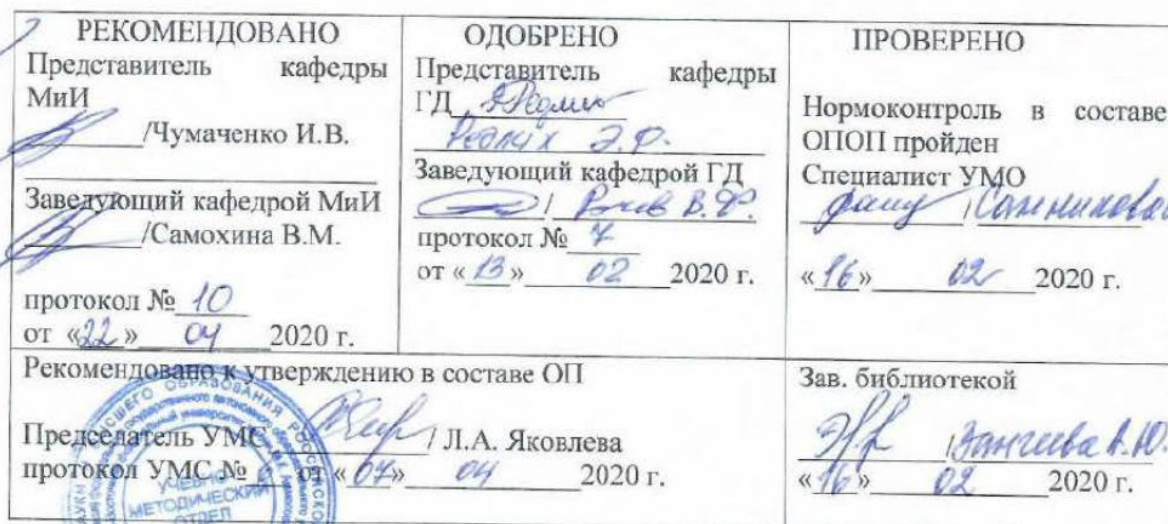 РЕКОМЕНДОВАНО
Представитель кафедры
МиИ
/Чумаченко И.В.
Заведующий кафедрой МиИ
/Самохина В.М.
протокол № 10
от «22» 04 2020 г.
ОДОБРЕНО
Представитель кафедры
ГД
Редлих Э.Ф.
Заведующий кафедрой ГД
/ Рукович В.Ф.
протокол № 7
от «13» 02 2020 г.
ПРОВЕРЕНО
Нормоконтроль в составе
ОПОП пройден
Специалист УМО
/Санникова
«16» 02 2020 г.
Рекомендовано к утверждению в составе ОП
Председатель УМС / Л.А. Яковлева
протокол УМС № от «07» 04 2020 г.
Зав. библиотекой
/Зангеева А.Ю.
«16» 02 2020 г.
УЧЕБНО
МЕТОДИЧЕСКИЙ
ОТДЕЛ